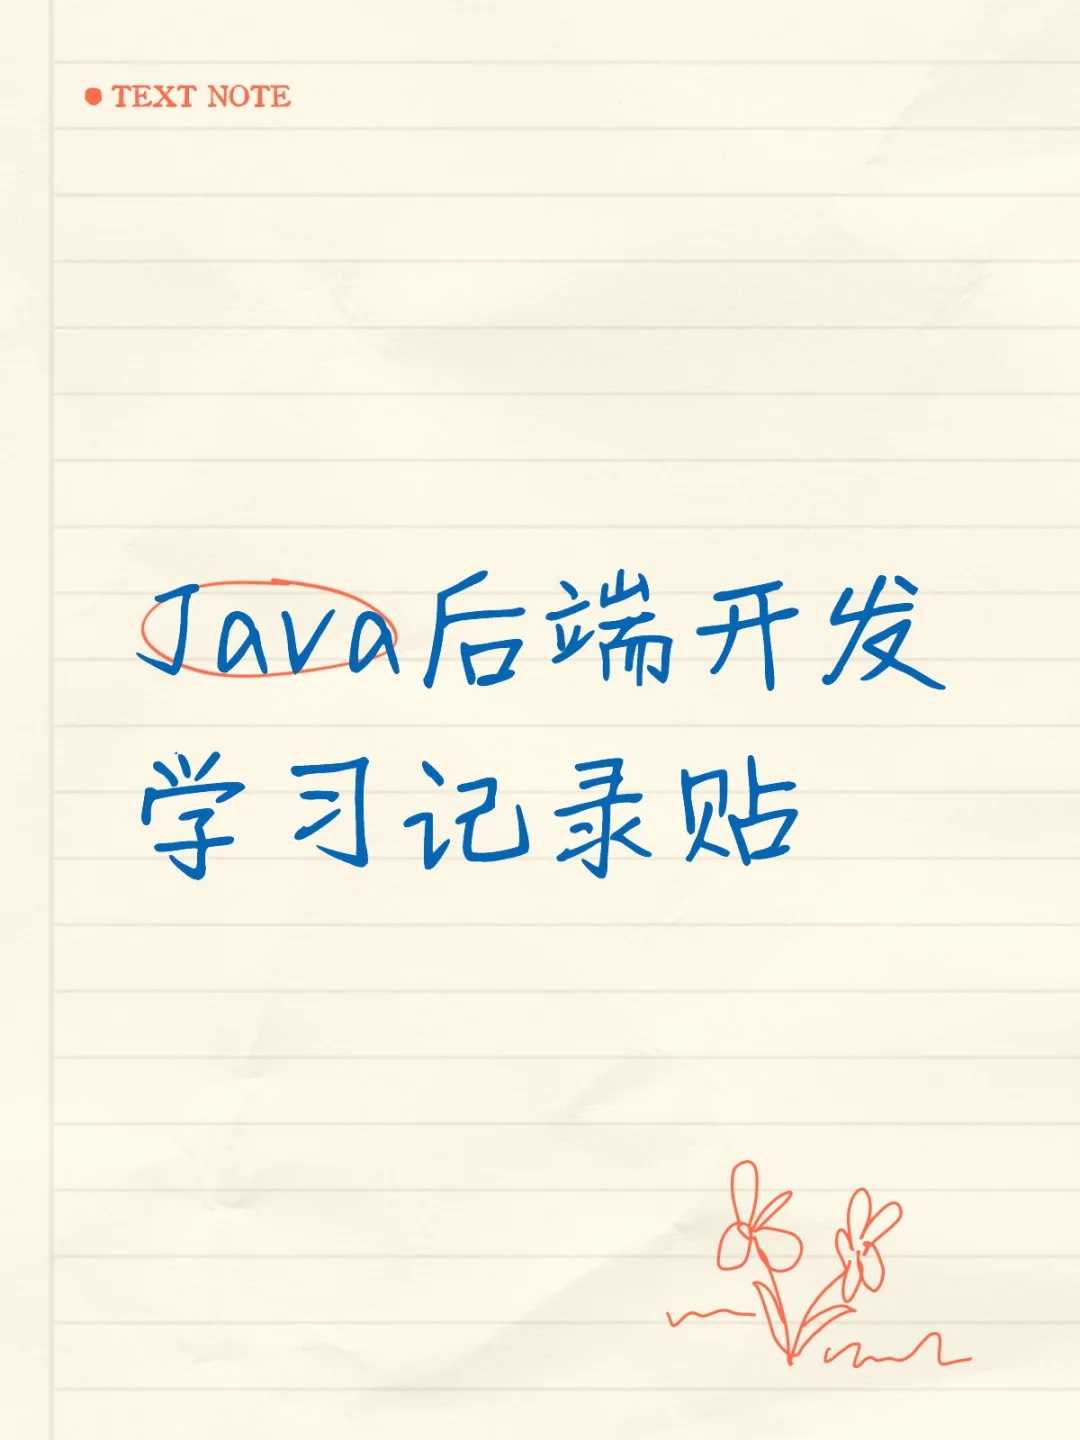 TEXT NOTE
Java后端开发
学习记录贴